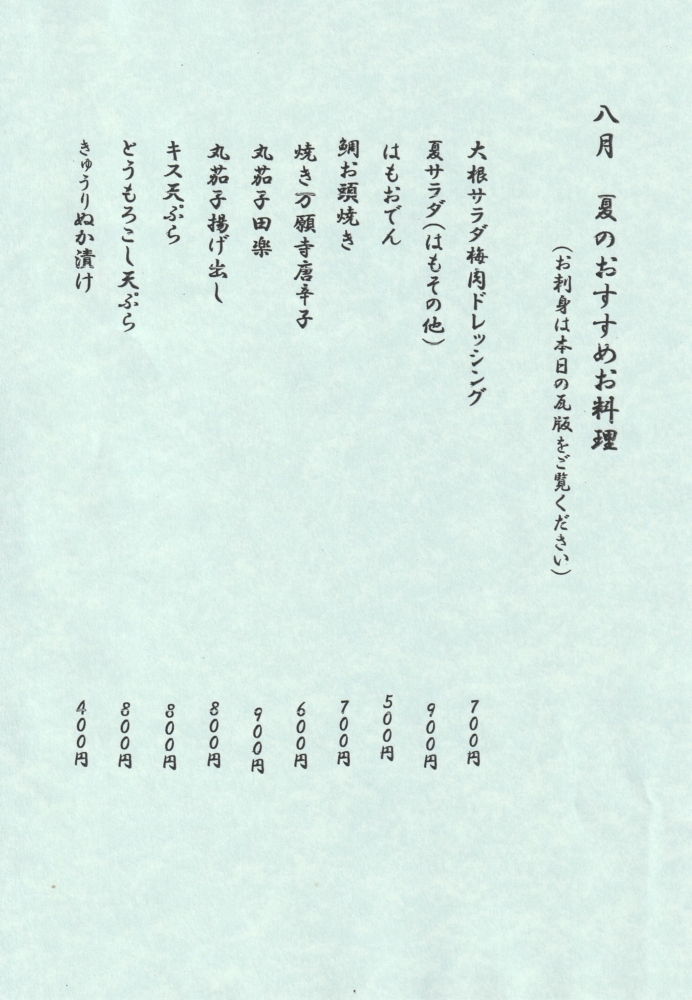 八月　夏のおすすめお料理
（お刺身は本日の瓦版をご覧ください）
大根サラダ梅肉ドレッシング　700円
夏サラダ（はもその他）　900円
はもおでん　500円
鯛お頭焼き　700円
焼き万願寺唐辛子　600円
丸茄子田楽　900円
丸茄子揚げ出し　800円
キス天ぷら　800円
とうもろこし天ぷら　800円
きゅうりぬか漬け　400円